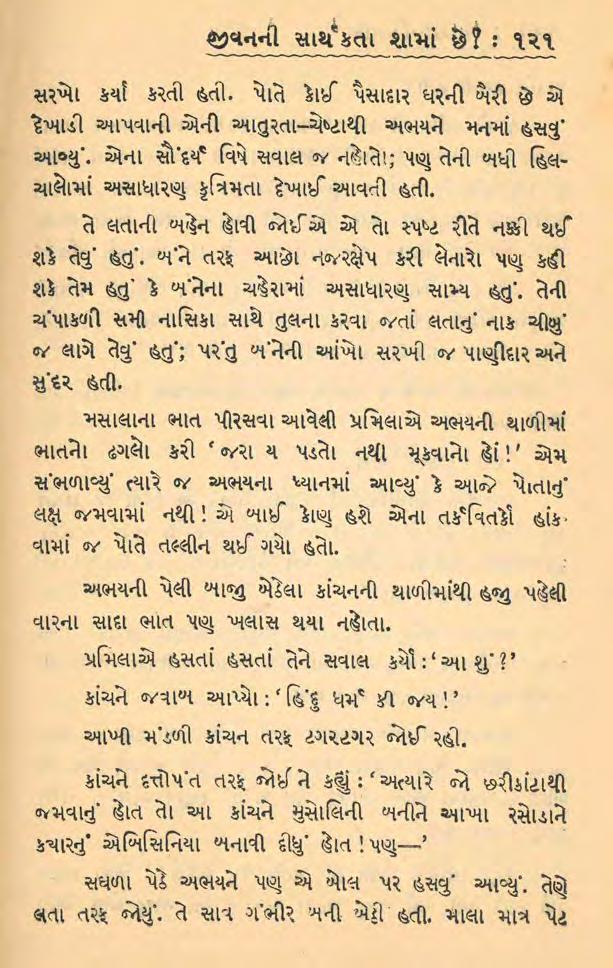 જીવનની સાર્થકતા શામાં છે? : ૧૨૧
સરખો કર્યા કરતી હતી. પોતે કોઈ પૈસાદાર ઘરની બૈરી છે એ
દેખાડી આપવાની એની આતુરતા–ચેષ્ટાથી અભયને મનમાં હસવું
આવ્યું. એના સૌંદર્ય વિષે સવાલ જ નહોતો; પણ તેની બધી હિલ-
ચાલોમાં અસાધારણ કૃત્રિમતા દેખાઈ આવતી હતી.
તે લતાની બહેન હોવી જોઈએ એ તો સ્પષ્ટ રીતે નક્કી થઈ
શકે તેવું હતું. બંને તરફ આછો નજરક્ષેપ કરી લેનારો પણ કહી
શકે તેમ હતું કે બંનેના ચહેરામાં અસાધારણ સામ્ય હતું. તેની
ચંપાકળી સમી નાસિકા સાથે તુલના કરવા જતાં લતાનું નાક ચીબું
જ લાગે તેવું હતું; પરંતુ બંનેની આંખો સરખી જ પાણીદાર અને
સુંદર હતી.
મસાલાના ભાત પીરસવા આવેલી પ્રમિલાએ અભયની થાળીમાં
ભાતનો ઢગલો કરી ‘જરા ય પડતો નથી મૂકવાનો હોં!’ એમ
સંભળાવ્યું ત્યારે જ અભયના ધ્યાનમાં આવ્યું કે આજે પોતાનું
લક્ષ જમવામાં નથી! એ બાઈ કોણ હશે એના તર્કવિતર્કો હાંક-
વામાં જ પોતે તલ્લીન થઈ ગયો હતો.
અભયની પેલી બાજુ બેઠેલા કાંચનની થાળીમાંથી હજુ પહેલી
વારના સાદા ભાત પણ ખલાસ થયા નહોતા.
પ્રમિલાએ હસતાં હસતાં તેને સવાલ કર્યો : ‘આ શું?’
કાંચને જવાબ આપ્યો : ‘હિંદુ ધર્મ કી જય!’
આખી મંડળી કાંચન તરફ ટગરટગર જોઈ રહી.
કાંચને દત્તોપંત તરફ જોઈને કહ્યું : ‘અત્યારે જો છરીકાંટાથી
જમવાનું હોત તો આ કાંચને મુસોલિની બનીને આખા રસોડાને
ક્યારનું એબિસિનિયા બનાવી દીધું હોત! પણ—’
સઘળા પેઠે અભયને પણ એ બોલ પર હસવું આવ્યું. તેણે
લતા તરફ જોયું. તે સાવ ગંભીર બની બેઠી હતી. માલા માત્ર પેટ